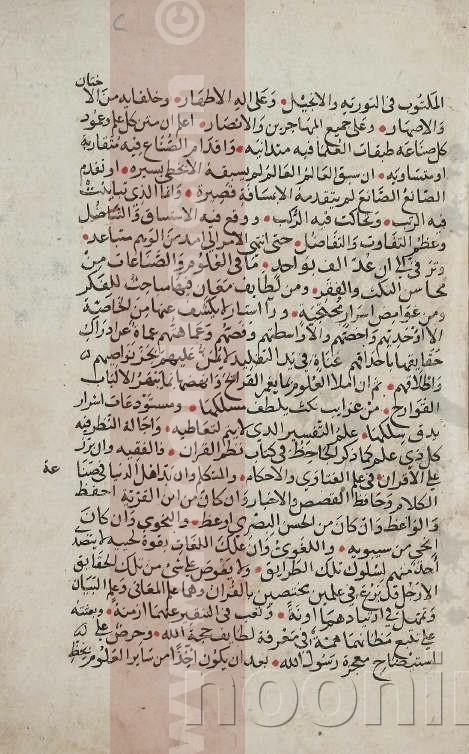 ختان
المكتوب في التوريه والانجيل وعلى اله الاطهار وخلفايه من الا
والاصهار وعلى جميع المهاجرين والانصار اعلم ان متن كل علم وعمود
كل صناعه طبقات العلما فيه متدانيه واقدام الصناع فيه متقاربة
او متساويه ان سبق العالم العالم لم يسبقه الا بخطى يسيره او تقدم
الصانع الصانع لم يتقدمه الا بمسافة قصيرة وانما الذي تباينت
فيه الرتب وتحاكت فيه الركب ووقع فيه الاستباق والتناضل
وعظم التفاوت والتفاضل حتى انتهى الامر الى امد من الوهم متباعد
وترقى الى ان عد الف بواحد ما في العلوم والصناعات من
محاسن النكت والفقر ومن لطايف معان فيها مباحث للفكر
ومن غوامض اسرار محتجبة ورا استار لا يكشف عنها من الخاصة
الا اوحدهم واخصهم والا واسطتهم وفصهم وعامتهم عماة عن ادراك
حقايقها باحداقهم عناة في يد التقليد لا يمن عليهم بجز نواصيهم
واطلاقهم ثم ان املا العلوم بما يغمر القرايح وانهضها بما يبهر الالباب
القوارح من غرايب نكت يلطف مسلكها ومستودعات اسرار
يدق سلكها علم التفسير الذي لا يتم لتعاطيه واجالة النظر فيه
كل ذي علم كما ذكر الجاحظ في كتاب نظم القران فالفقيه وان برز
على الاقران في علم الفتاوى والاحكام والمتكلم وان بز اهل الدنيا في صنا
عة
الكلام وحافظ القصص والاخبار وان كان من ابن القرية احفظ
والواعظ وان كان من الحسن البصري اوعظ والنحوي وان كان
انحى من سيبويه واللغوي وان علك اللغات بقوة لحييه لا يتصدى
احد منهم لسلوك تلك الطرايق ولا يغوص على شي من تلك الحقايق
الا رجل قد برع في علمين مختصين بالقران وهما علم المعاني وعلم البيان
وتمهل في ارتيادهما اونة وتعب في التنقير عنهما ازمنة وبعثته
على تتبع مظانهما همة في معرفة لطايف حجة الله وحرص على
استيضاح معجزة رسول الله بعد ان يكون اخذا من ساير العلوم بحظ
noorli